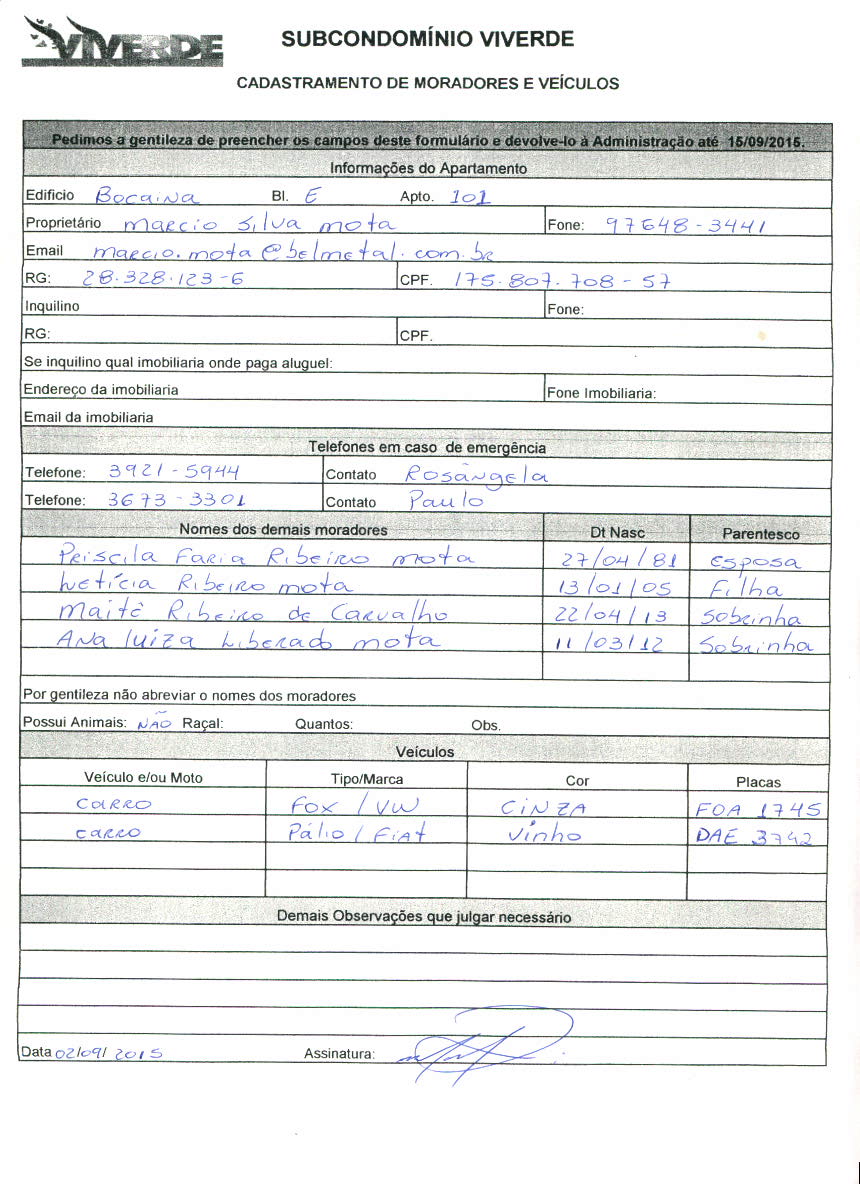 VIVERDE
SUBCONDOMÍNIO VIVERDE
CADASTRAMENTO DE MORADORES E VEÍCULOS
Pedimos a gentileza de preencher os campos deste formulário e devolve-lo à Administração até 15/09/2015.
Informações do Apartamento
Edificio Bocaina Bl. E Apto. 101
Proprietário Marcio Silva Mota Fone: 97648-3441
Email marcio.mota@belmetal.com.br
RG: 28.328.123-6 CPF. 175.807.708-57
Inquilino Fone:
RG: CPF.
Se inquilino qual imobiliaria onde paga aluguel:
Endereço da imobiliaria Fone Imobiliaria:
Email da imobiliaria
Telefones em caso de emergência
Telefone: 3921-5944 Contato Rosângela
Telefone: 3673-3301 Contato Paulo
Nomes dos demais moradores Dt Nasc Parentesco
Priscila Faria Ribeiro Mota 27/04/81 esposa
Letícia Ribeiro Mota 13/01/05 Filha
Maitê Ribeiro de Carvalho 22/04/13 Sobrinha
Ana Luiza Liberado Mota 11/03/12 Sobrinha
Por gentileza não abreviar o nomes dos moradores
Possui Animais: NÃO Raçal: Quantos: Obs.
Veículos
Veículo e/ou Moto Tipo/Marca Cor Placas
CARRO FOX / VW CINZA FOA 1745
CARRO Pálio / FIAT Vinho DAE 3742
Demais Observações que julgar necessário
Data 02/09/2015 Assinatura: